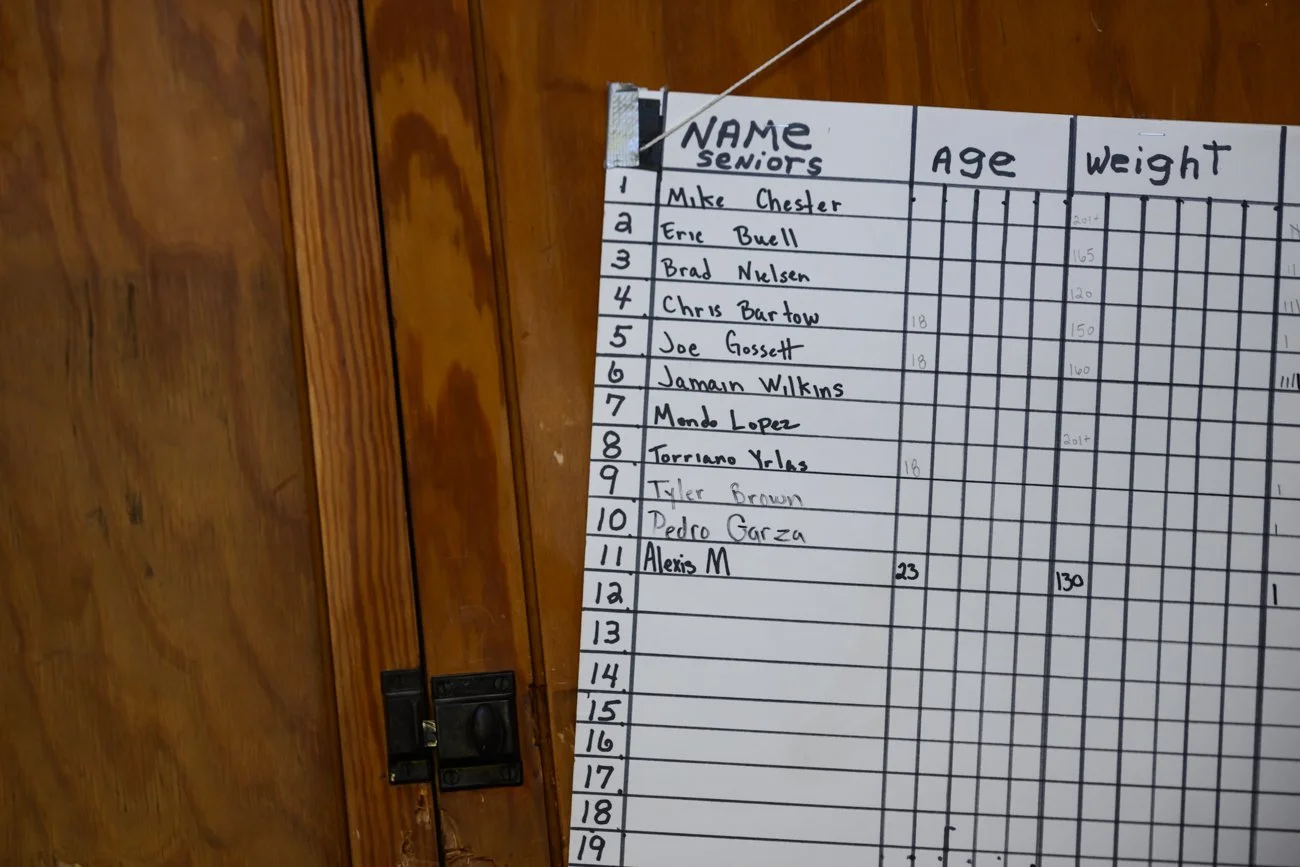 NAME Age Weight
SENIORS
1 Mike Chester 201+
2 Eric Buell 165
3 Brad Nielsen 120
4 Chris Bartow 18 150
5 Joe Gossett 18 160
6 Jamain Wilkins
7 Mondo Lopez 201+
8 Torriano Yrlas 18
9 Tyler Brown
10 Pedro Garza
11 Alexis M 23 130
12
13
14
15
16
17
18
19